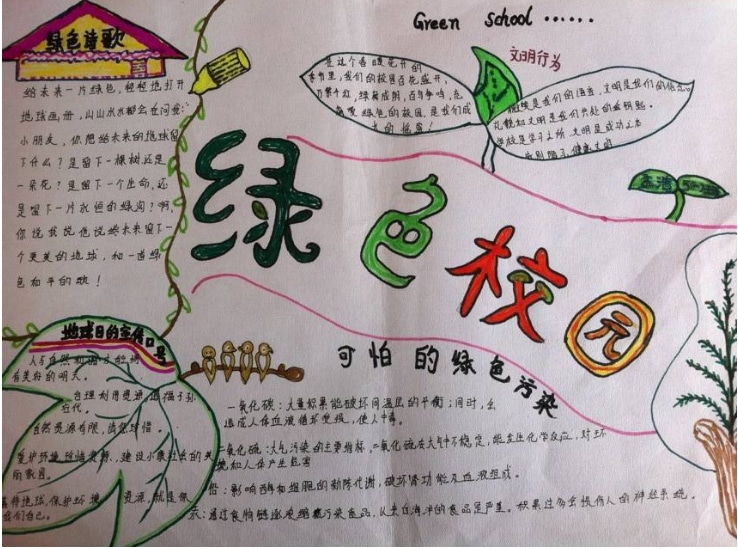 Green school ······
绿色诗歌
给未来一片绿色,轻轻地打开
地球画册,山山水水都会在问爱:
小朋友,你把给未来的地球留
下什么?是留下一棵树还是
一朵花?是留下一个生命,还
是留下一片永恒的绿洲?啊,
你说我说他说给未来留下一
个更美的地球,如一首绿
色和平的歌!
在这个春暖花开的
季节里,我们的校园百花盛开,
万紫千红,绿树成阴,百鸟争鸣,
绿色的校园,是我们成
的摇篮!
文明行为
是我们的语言,文明是我们的信念。
礼貌和文明是我们共处的金钥匙。
学校是学习之所 文明是成功之本
绿色校园
地球日的宣传口号
人与自然
有美好的明天。
合理利用资源 造福子孙
近代。
自然资源有限,请您珍惜。
爱护环境 珍惜资源,建设小康社会的美
丽家园。
善待地球,保护环境 资源,就是保
我们自己。
可怕的绿色污染
一氧化碳:大量积累能破坏间温层的平衡;同时,会
造成人体血液循环受损,使人中毒。
二氧化硫:大气污染的主要指标,二氧化硫在大气中不稳定,能发生化学反应,对环
境和人体产生危害
铅:影响酶和细胞的新陈代谢,破坏肾功能及血液组成。
汞:通过食物链逐级缩聚污染食品,以来自海洋的食品是严重。积累过多会损伤人的神经系统。